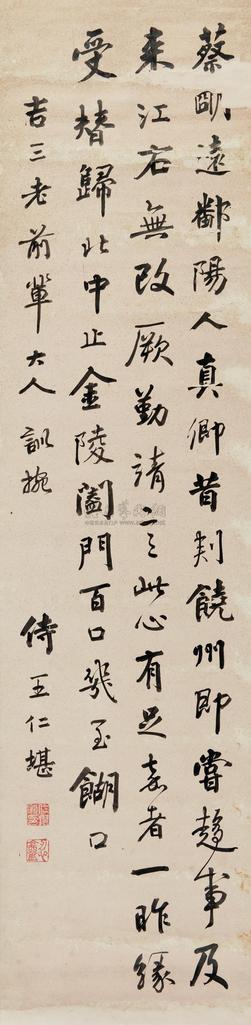 蔡明遠鄱陽人真卿昔刺饒州即嘗趨事及
来江右無改厥勤靖言此心有足嘉者一昨緣
受替歸北中止金陵闔門百口幾至餬口
吉三老前輩大人訓椀
侍王仁堪